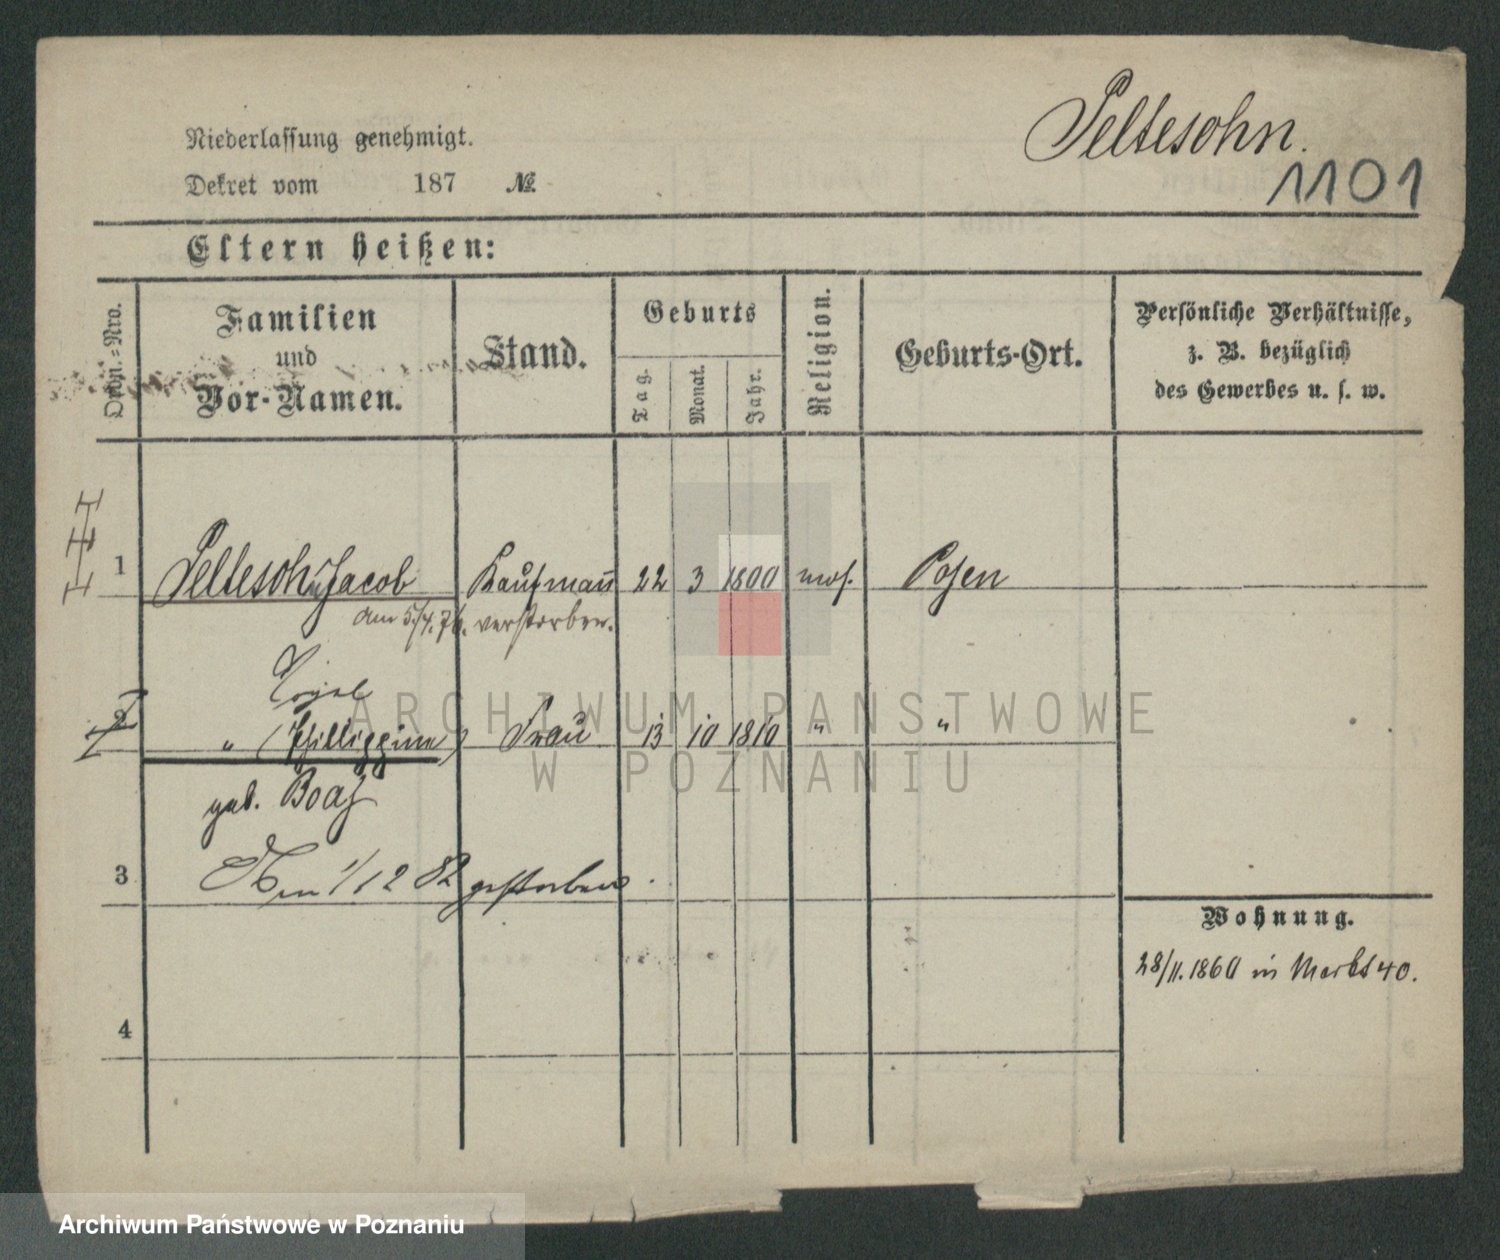 Peltesohn.
1101
Niederlassung genehmigt.
Dekret vom 187 №
Eltern heißen:
Ordn.=Nro.
Familien
und
Vor-Namen.
Stand.
Geburts
Tag.
Monat.
Jahr.
Religion.
Geburts-Ort.
Persönliche Verhältnisse,
z. B. bezüglich
des Gewerbes u. s. w.
1 Peltesohn Jacob Kaufmañ 22 3 1800 mos. Posen
am 5/4. 76. verstorben.
2 " (Philippine) Frau 13 10 1810 " "
geb. Boas
3 Am 1/12 82 gestorben.
Wohnung.
28/11. 1860 in Markt 40.
4
ARCHIWUM PAŃSTWOWE
W POZNANIU
Archiwum Państwowe w Poznaniu